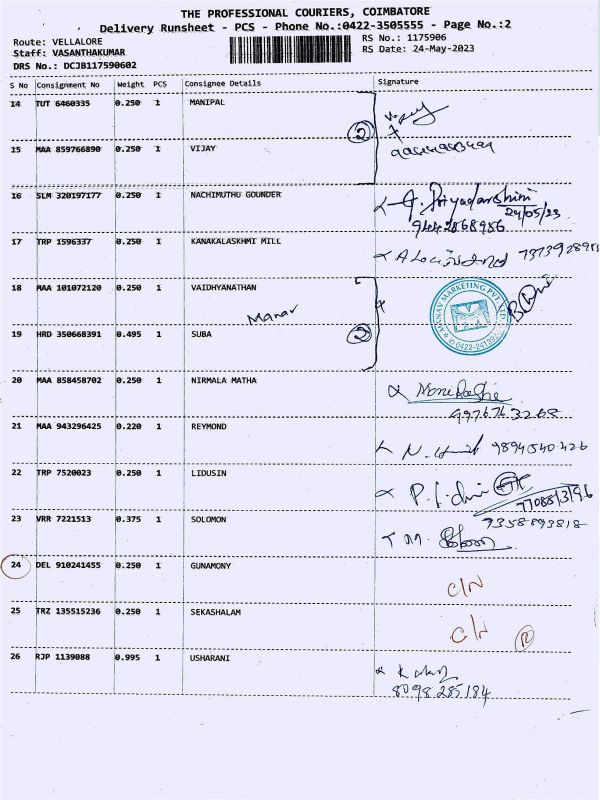 THE PROFESSIONAL COURIERS, COIMBATORE
Delivery Runsheet - PCS - Phone No.:0422-3505555 - Page No.:2
Route: VELLALORE
RS No.: 1175906
Staff: VASANTHAKUMAR
RS Date: 24-May-2023
DRS No.: DCJB117590602
S No Consignment No Weight PCS Consignee Details Signature
14 TUT 6460335 0.250 1 MANIPAL
2
15 MAA 859766890 0.250 1 VIJAY
16 SLM 320197177 0.250 1 NACHIMUTHU GOUNDER
G. Priyadarshini
24/05/23
9442868956
17 TRP 1596337 0.250 1 KANAKALASKHMI MILL
18 MAA 101072120 0.250 1 VAIDHYANATHAN
Manav
MANAV MARKETING PVT. LTD
19 HRD 350668391 0.495 1 SUBA
2
20 MAA 858458702 0.250 1 NIRMALA MATHA
9976763268
21 MAA 943296425 0.220 1 REYMOND
9894540426
22 TRP 7520023 0.250 1 LIDUSIN
23 VRR 7221513 0.375 1 SOLOMON
9358893818
24 DEL 910241455 0.250 1 GUNAMONY
C/N
25 TRZ 135515236 0.250 1 SEKASHALAM
C/N R
26 RJP 1139088 0.995 1 USHARANI
8098285184